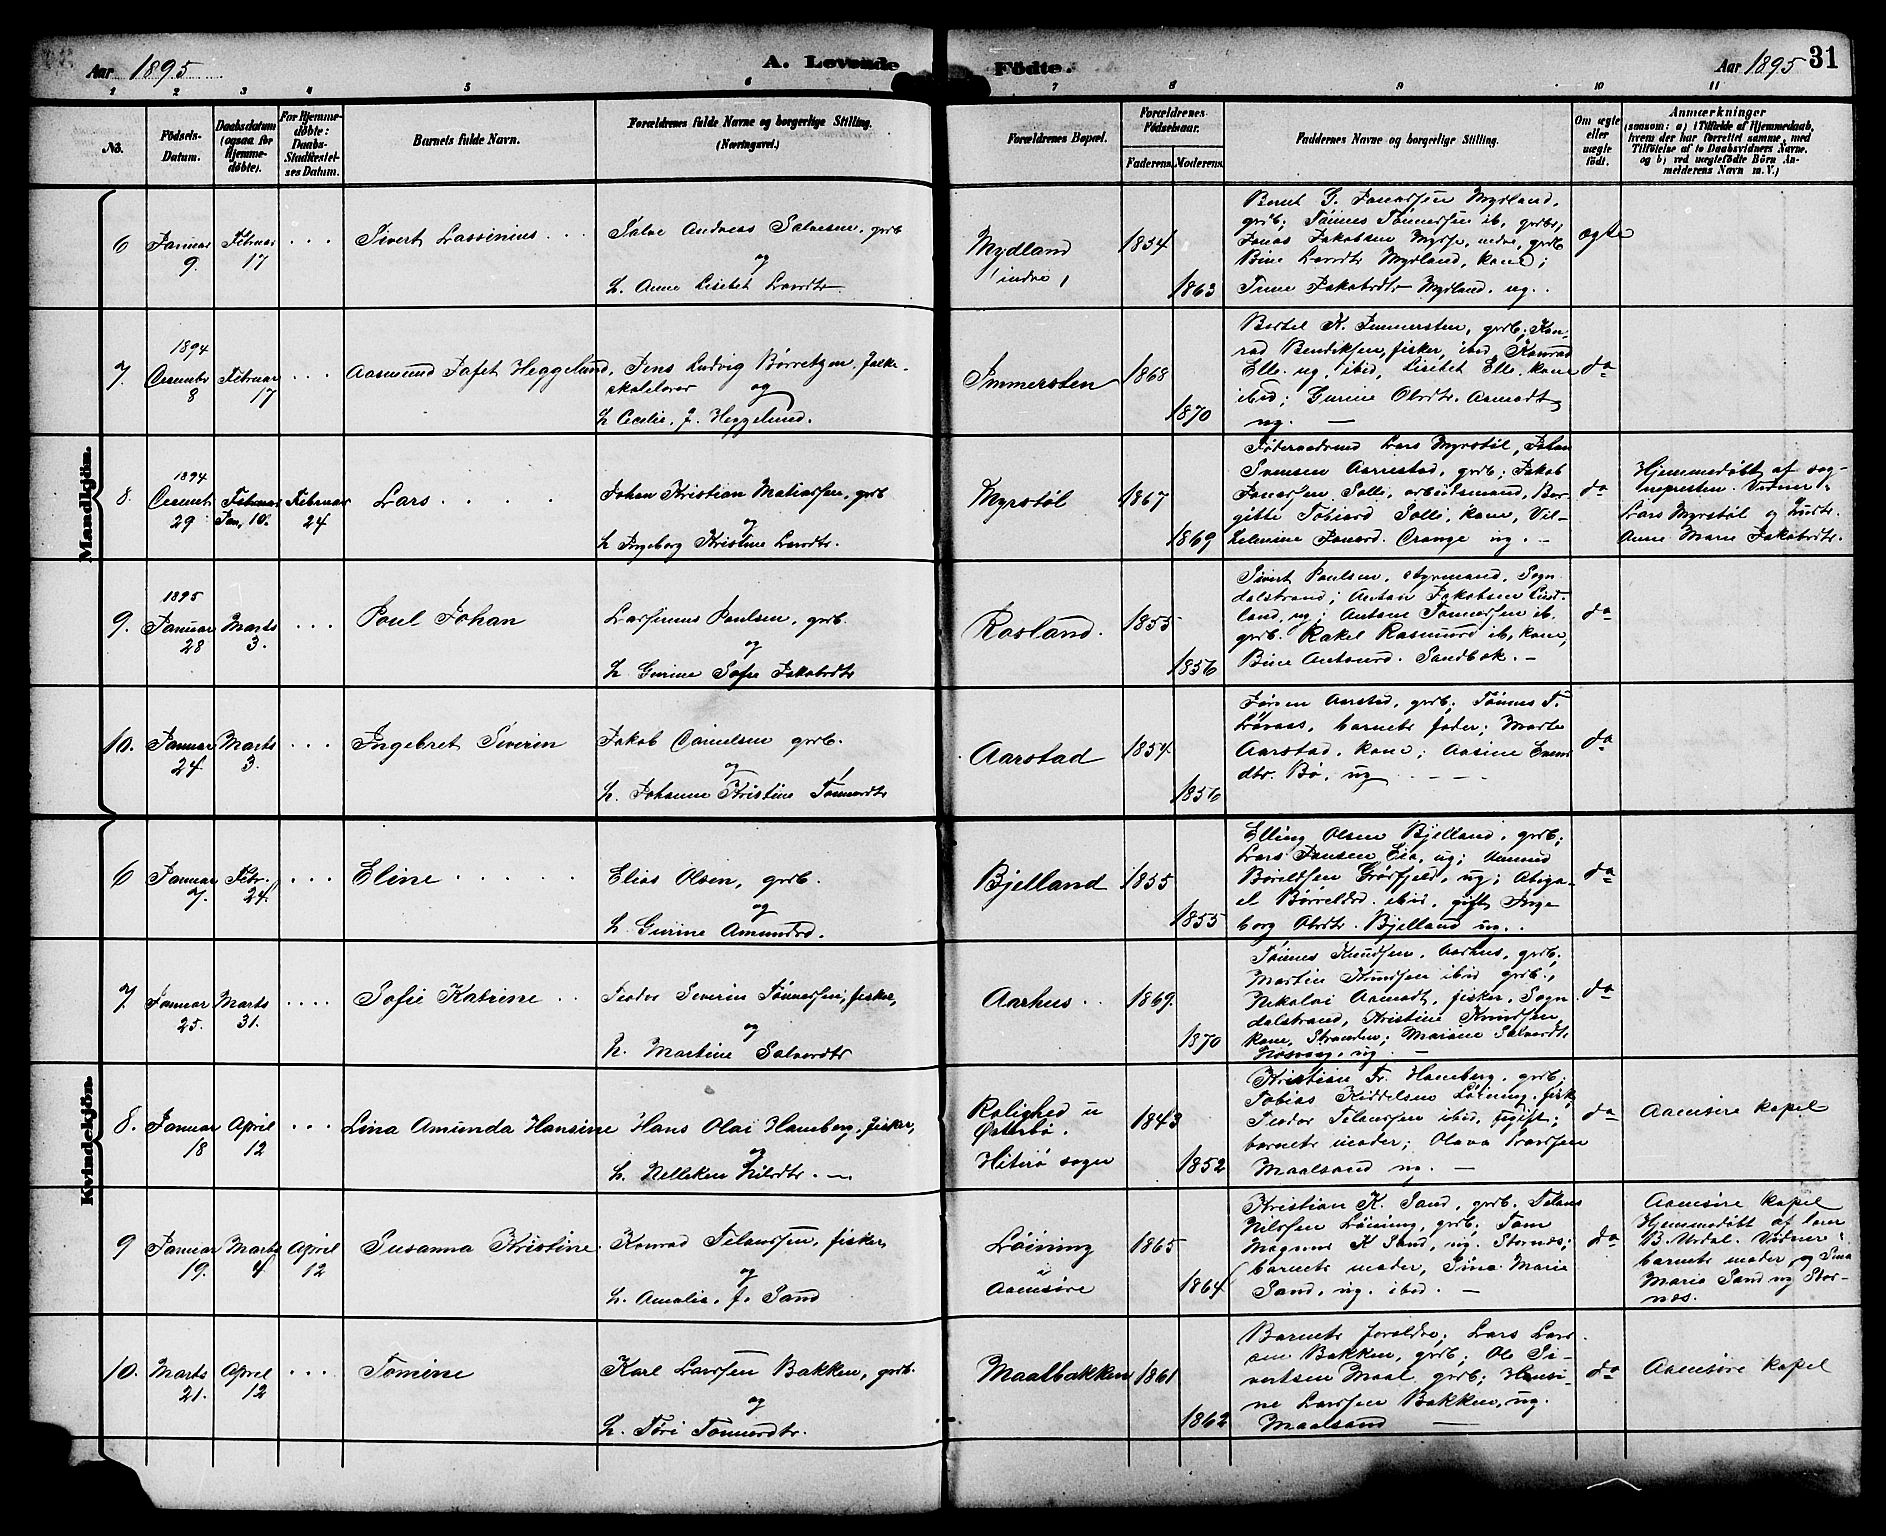 Aar 1895
A. Levende
Födte.
Aar 1895
31
1 2 3 4 5 6 7 8 9 10 11
No.
Födsels-
Datum.
Daabsdatum
(ogsaa for
Hjemme-
döbte).
For Hjemme-
döbte:
Daabs-
Stadfæstel-
ses Datum.
Barnets fulde Navn.
Forældrenes fulde Navne og borgerlige Stilling.
(Næringsvei.)
Forældrenes Bopæl.
Forældrenes
Födselsaar.
Faderens.
Moderens.
Faddernes Navne og borgerlige Stilling.
Om ægte
eller
uægte
født.
Anmærkninger
(saasom: a) i Tilfælde af Hjemmedaab,
hvem der har forrettet samme, med
Tilföielse af to Daabsvidners Navne.
og b) ved uægtefödte Börn An-
melderens Navn m. V.)
Mandkjön.
6
Januar
9.
Februar
17
Sivert Lassenius
Salve Andreas Salvesen, grdb
og
h. Anne Lisebet Larsdtr.
Mydland
(indre)
1854
1863
Bernt G. Jonassen Mydland,
grdb; Tönnes Tönnessen ib, grdbr,
Jonas Jakobsen Mysse, nedre, grdb
Bine Larsdtr Mydland, kone;
Trine Jakobsdtr Mydland, ug.
ægte
7.
1894
December
8
Februar
17
Aasmund Jafet Heggelund,
Jens Ludvig Börretzen, folke-
skolelærer og
h Cecilie, f. Heggelund.
Immersten
1868
1870
Bertel K. Immersten, grdb; Kon-
rad Bendiksen, fisker, ibid, Konrad
Elle. ug, ibid, Lisebet Elle, kone
ibid; Gurine Olsdtr. Aamodt,
ug.
do
8.
1894
Decembr
29
Februar
Jan. 10.
Februar
24
Lars
Johan Kristian Matiassen, grdb
og
h Ingeborg Kristine Larsdtr.
Myrstöl
1867
1869
Föderaadsmd Lars Myrstöl, Johan
Svensen Aarrestad, grdb; Jakob
Jonassen Solli, arbeidsmand, Ber-
gitte Tobiasd Solli, kone, Vil-
helmine Jonasd. Orange ug.
do
Hjemmedöbt af sog-
nepresten. Vidner:
Lars Myrstöl og
Anne Marie Jakobsdtr.
9.
1895
Januar
28
Marts
3.
Poul Johan
Larsenius Poulsen, grdb.
og
h. Gurine Sofie Jakobsdtr
Rosland.
1855
1856
Sivert Poulsen, styrmand, Sogn-
dalstrand; Anton Jakobsen
land, ug; Antone Tönnessen ib.
grdb. Rakel Rasmusd ib, kone,
Bine Antonsd. Sandbæk.
do
10.
Januar
24
Marts
3.
Ingebret Severin
Jakob Danielsen grdb.
og
h. Johanne Kristine Tönnesdtr
Aarstad
1854
1856
Jörgen Aarstad, grdb; Tönnes T.
Lövaas, barnets fader; Marte
Aarstad, kone; Aasine
dtr. Bö, ug
do
Kvindekjön.
6
Januar
7.
Febr.
24
Eline
Elias Olsen, grdb.
og
h. Gurine Amundsd.
Bjelland
1855
1855
Elling Olsen Bjelland, grdb;
Lars Jensen Eia, ug; Amund
Börildsen Grösfjeld, ug; Abiga-
el Börreldsd. ibid, gift, Inge-
borg Olsdtr. Bjelland ug.
do
7.
Januar
25.
Marts
31.
Sofie Katrine
Teodor Severin Tönnessen, fisker,
og
h. Martine Salvesdtr
Aarhus
1869.
1870
Tönnes Knudsen, Aarhus, grdb.
Martin Knudsen ibid grdb.,
Nikolai Aamodt, fisker, Sogn-
dalstrand, Kristine Knudsen
kone, Stranden; Mariane Salvesdtr.
ug.
do
8.
Januar
18
April
12
Lina Amunda Hansine
Hans Olai Hamberg, fisker,
og
h. Nelleken Nilsdtr.
Rolighed u
Österbö.
Hiterö sogn
1843
1852
Kristian Fr. Hamberg, grdb;
Tobias Kiddelsen Löining, fisk,
Teodor Telaussen ibid, ugift;
barnets moder; Olava
Maalsand ug.
do
Aaensire kapel
9
Januar
19.
Marts
4
April
12
Susanna Kristine
Konrad Telaussen, fisker
og
h. Amalie, f. Sand
Löining
i
Aaensire
1865
1864
Kristian K. Sand, grdb. Telaus
Nilssen Löining, grdb; Tom
Magnus K Sand, ug. Stornæs;
barnets moder, Sina Marie
Sand, ug. ibid.
do
Aaensire kapel
Hjemmedöbt af
B. Urdal. Vidner:
barnets moder og Sina
Marie Sand ug Stor-
næs.
10.
Marts
21.
April
12
Tomine
Karl Larssen Bakken, grdb.
og
h. Töri Tönnesdtr.
Maalbakken
1861
1862
Barnets forældre; Lars Lars-
sen Bakken, grdb; Ole Si-
vertsen Maal grdb; Hansi-
ne Larssen Bakken, ug.
Maalsand
do
Aaensire kapel